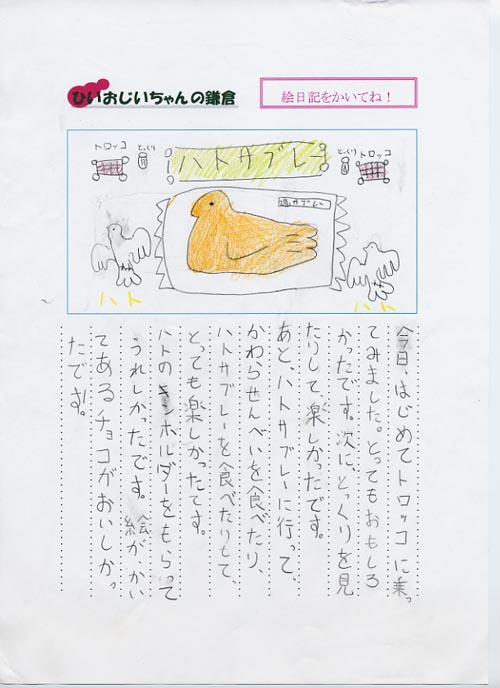 ひいおじいちゃんの鎌倉
絵日記をかいてね！
トロッコ
とっくり
ハトサブレー
とっくり
トロッコ
鳩サブレー
ハト
ハト
今日、はじめてトロッコに乗っ
てみました。とってもおもしろ
かったです。次に、とっくりを見
たりして楽しかったです。
あと、ハトサブレーに行って、
かわらせんべいを食べたり、
ハトサブレーを食べたりもて、
とっても楽しかったてす。
ハトのキンホルダーをもらって
うれしかったです。絵がかい
てあるチョコがおいしかっ
たです。